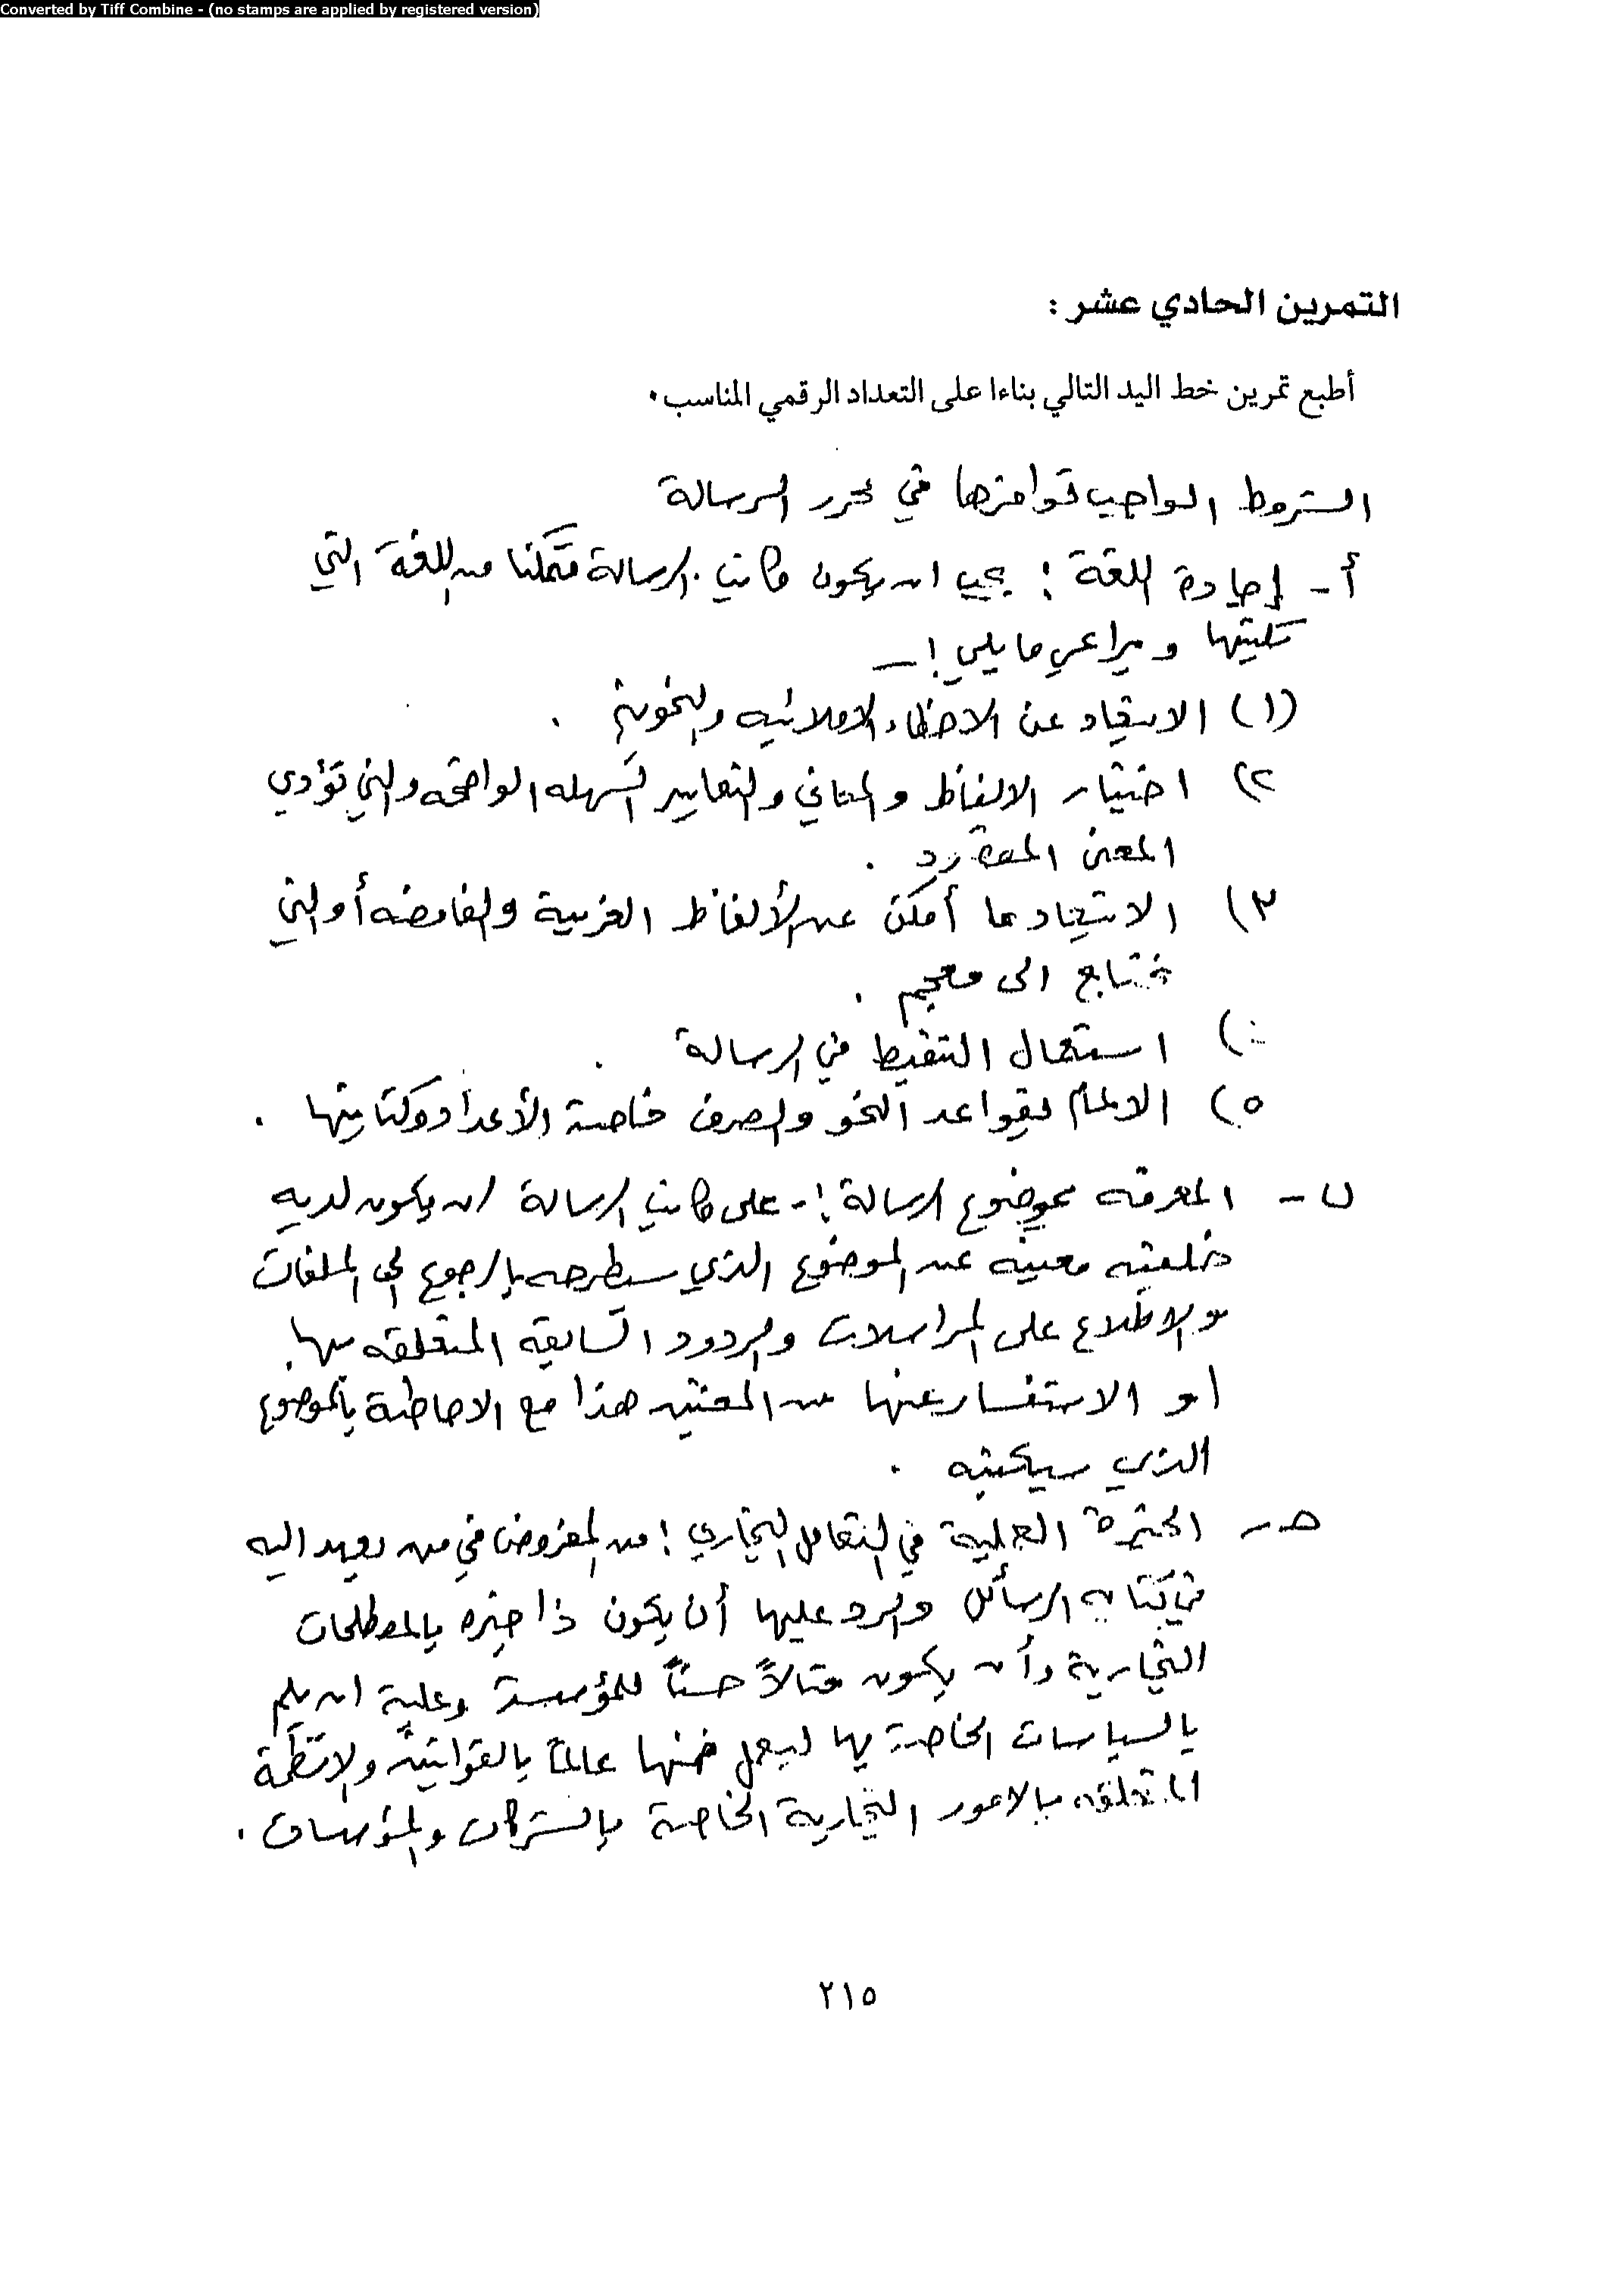 Converted by Tiff Combine - (no stamps are applied by registered version)
التمرين الحادي عشر :
أطبع تمرين خط اليد التالي بناءا على التعداد الرقمي المناسب .
الشروط الواجب توافرها في محرر الرسالة
أ - إجادة اللغة : يجب ان يكون كاتب الرسالة متمكنا من اللغة التي
تكتبها ويراعي ما يلي :-
(١) الابتعاد عن الاخطاء الاملائيه والنحوية .
٢) اختيار الالفاظ والمعاني والتعابير السهله الواضحه والتي تؤدي
المعنى المقصود .
٣) الابتعاد ما أمكن عن الألفاظ الغريبة والغامضه أو التي
تحتاج الى معجم .
٤) استعمال التنقيط في الرسالة .
٥) الالمام بقواعد النحو والصرف خاصة الأعداد وكتابتها .
ب - المعرفه بموضوع الرسالة :- على كاتب الرسالة ان يكون لديه
خلفيه معينه عن الموضوع الذي سيطرحه بالرجوع الى الملفات
والاطلاع على المراسلات والردود السابقه المتعلقه بها .
او الاستفسار عنها من المعنيين هذا مع الاحاطة بالموضوع
الذي سيكتبه .
هـ - الخبرة العملية في التعامل التجاري : من المفروض في من يعهد اليه
في كتابه الرسائل والرد عليها أن يكون ذا خبره بالمصطلحات
التجارية وأن يكون مثالاً حسناً للمؤسسة وعلية ان يلم
بالسياسات الخاصة بها ليعمل ضمنها عالماً بالقوانين والانظمة
المتعلقه بالامور التجارية الخاصة بالشركات والمؤسسات .
٢١٥